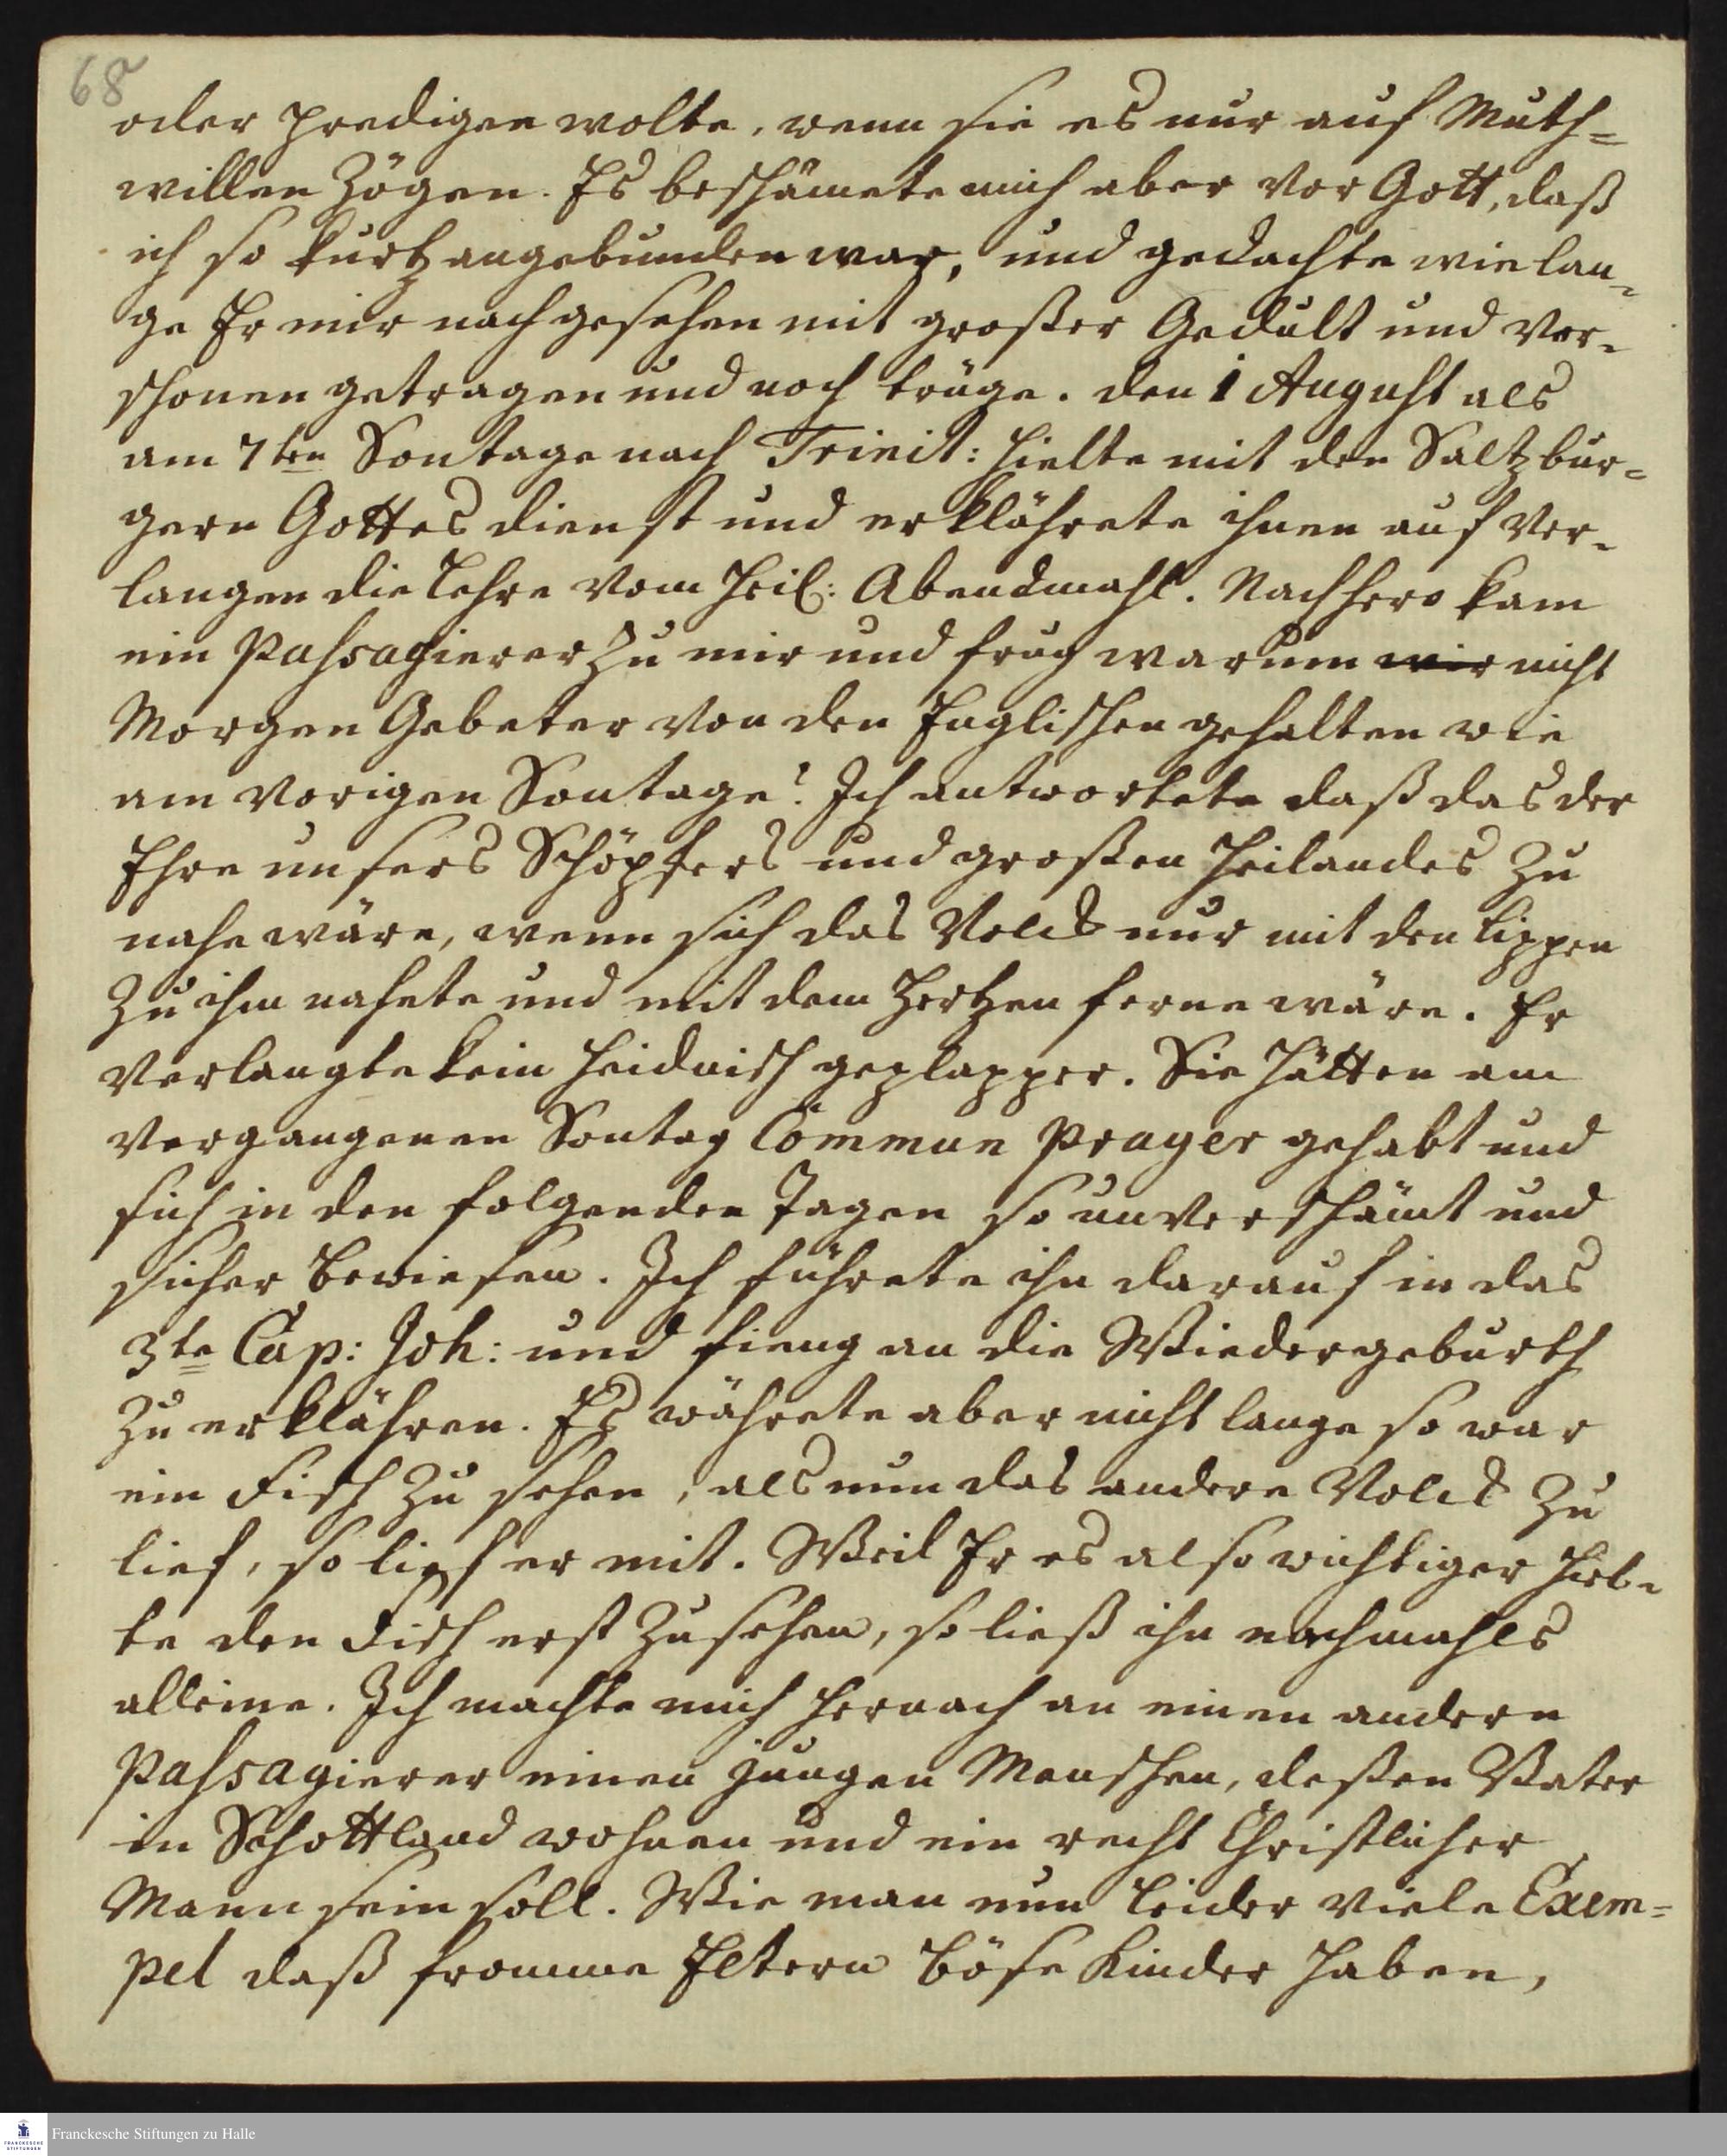 68
oder predigen wolte, wenn sie es nur auf Muth=
willen zögen. Es beschämete mich aber vor Gott, daß
ich so kurtz angebunden war, und gedachte wie lan-
ge Er mir nachgesehen mit großer Gedult und Ver-
schonen getragen und noch trüge. den 1 August als
am 7ten Sontage nach Trinit: hielte mit den Saltzbur=
gern Gottesdienst und erklährete ihnen auf Ver-
langen die Lehre vom Heil: Abendmahl. Nachhero kam
ein Passagierer zu mir und frug warum wir nicht
Morgen Gebeter von den Englischen gehalten wie
am vorigen Sontage? Ich antwortete daß das der
Ehre unsers Schöpfers und großen Heilandes zu
nahe wäre, wenn sich das Volck nur mit den Lippen
zu ihm nahete und mit dem Hertzen ferne wäre. Er
verlangte kein heidnisch geplapper. Sie hätten am
vergangenen Sontag Common prayer gehabt und
sich in den folgenden Tagen so unverschämt und
sicher bewiesen. Ich führete ihn darauf in das
3te Cap: Joh: und fieng an die Wiedergeburth
zu erklähren. Es währete aber nicht lange so war
ein Fisch zu sehen, als nun das andere Volck zu
lief, so lief er mit. Weil Er es also wichtiger hiel-
te den Fisch erst zu sehen, so ließ ihn nachmahls
alleine. Ich machte mich hernach an einen andern
Passagierer einen jungen Menschen, deßen Vater
in Schottland wohnen und ein recht Christlicher
Mann sein soll. Wie man nun leider viele Exem=
pel daß fromme Eltern böse Kinder haben,
FRANCKESCHE STIFTUNGEN
Franckesche Stiftungen zu Halle